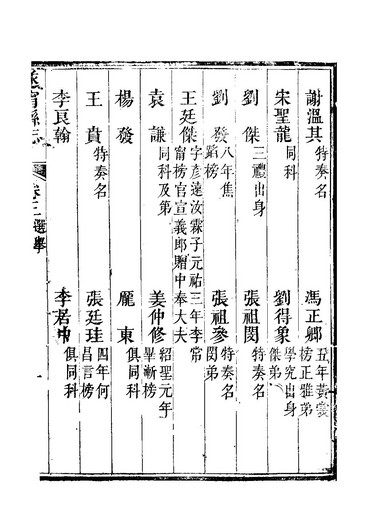 謝溫其 特奏名
馮正卿 五年黃裳榜正雅弟
宋聖龍 同科
劉得象 學究出身傑弟
劉傑 三禮出身
張祖閔 特奏名
劉發 八年焦蹈榜
張祖參 特奏名閔弟
王廷傑 字彥遠汝霖子元祐三年李常甯榜官宣義郎贈中奉大夫
袁謙 同科及第
姜仲修 紹聖元年畢漸榜
楊發
龐東 俱同科
王賁 特奏名
張廷珪 四年何昌言榜
李良翰
李君中 俱同科
遂甯縣志 卷三 選舉